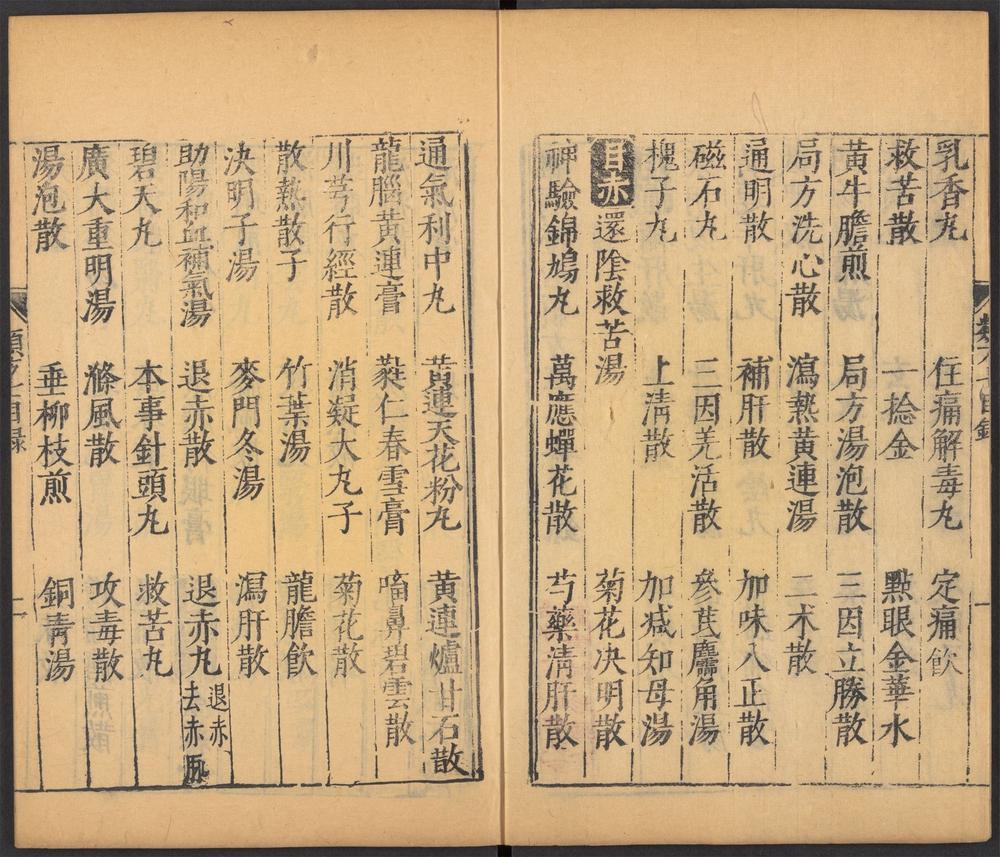 乳香丸 住痛解毒丸 定痛飲
救苦散 一捻金 點眼金華水
黃牛膽煎 局方湯泡散 三因立勝散
局方洗心散 瀉熱黃連湯 二术散
通明散 補肝散 加味八正散
磁石丸 三因羌活散 參芪麝角湯
槐子丸 上清散 加減知母湯
目赤 還陰救苦湯 菊花決明散
神驗錦鳩丸 萬應蟬花散 芍藥清肝散
通氣利中丸 黃連天花粉丸 黃連爐甘石散
龍腦黃連膏 蕤仁春雪膏 㗜鼻碧雲散
川芎行經散 消凝大丸子 菊花散
散熱散子 竹葉湯 龍膽飲
決明子湯 麥門冬湯 瀉肝散
助陽和血補氣湯 退赤散 退赤丸 退赤 去赤脈
碧天丸 本事針頭丸 救苦丸
廣大重明湯 滌風散 攻毒散
湯泡散 垂柳枝煎 銅青湯